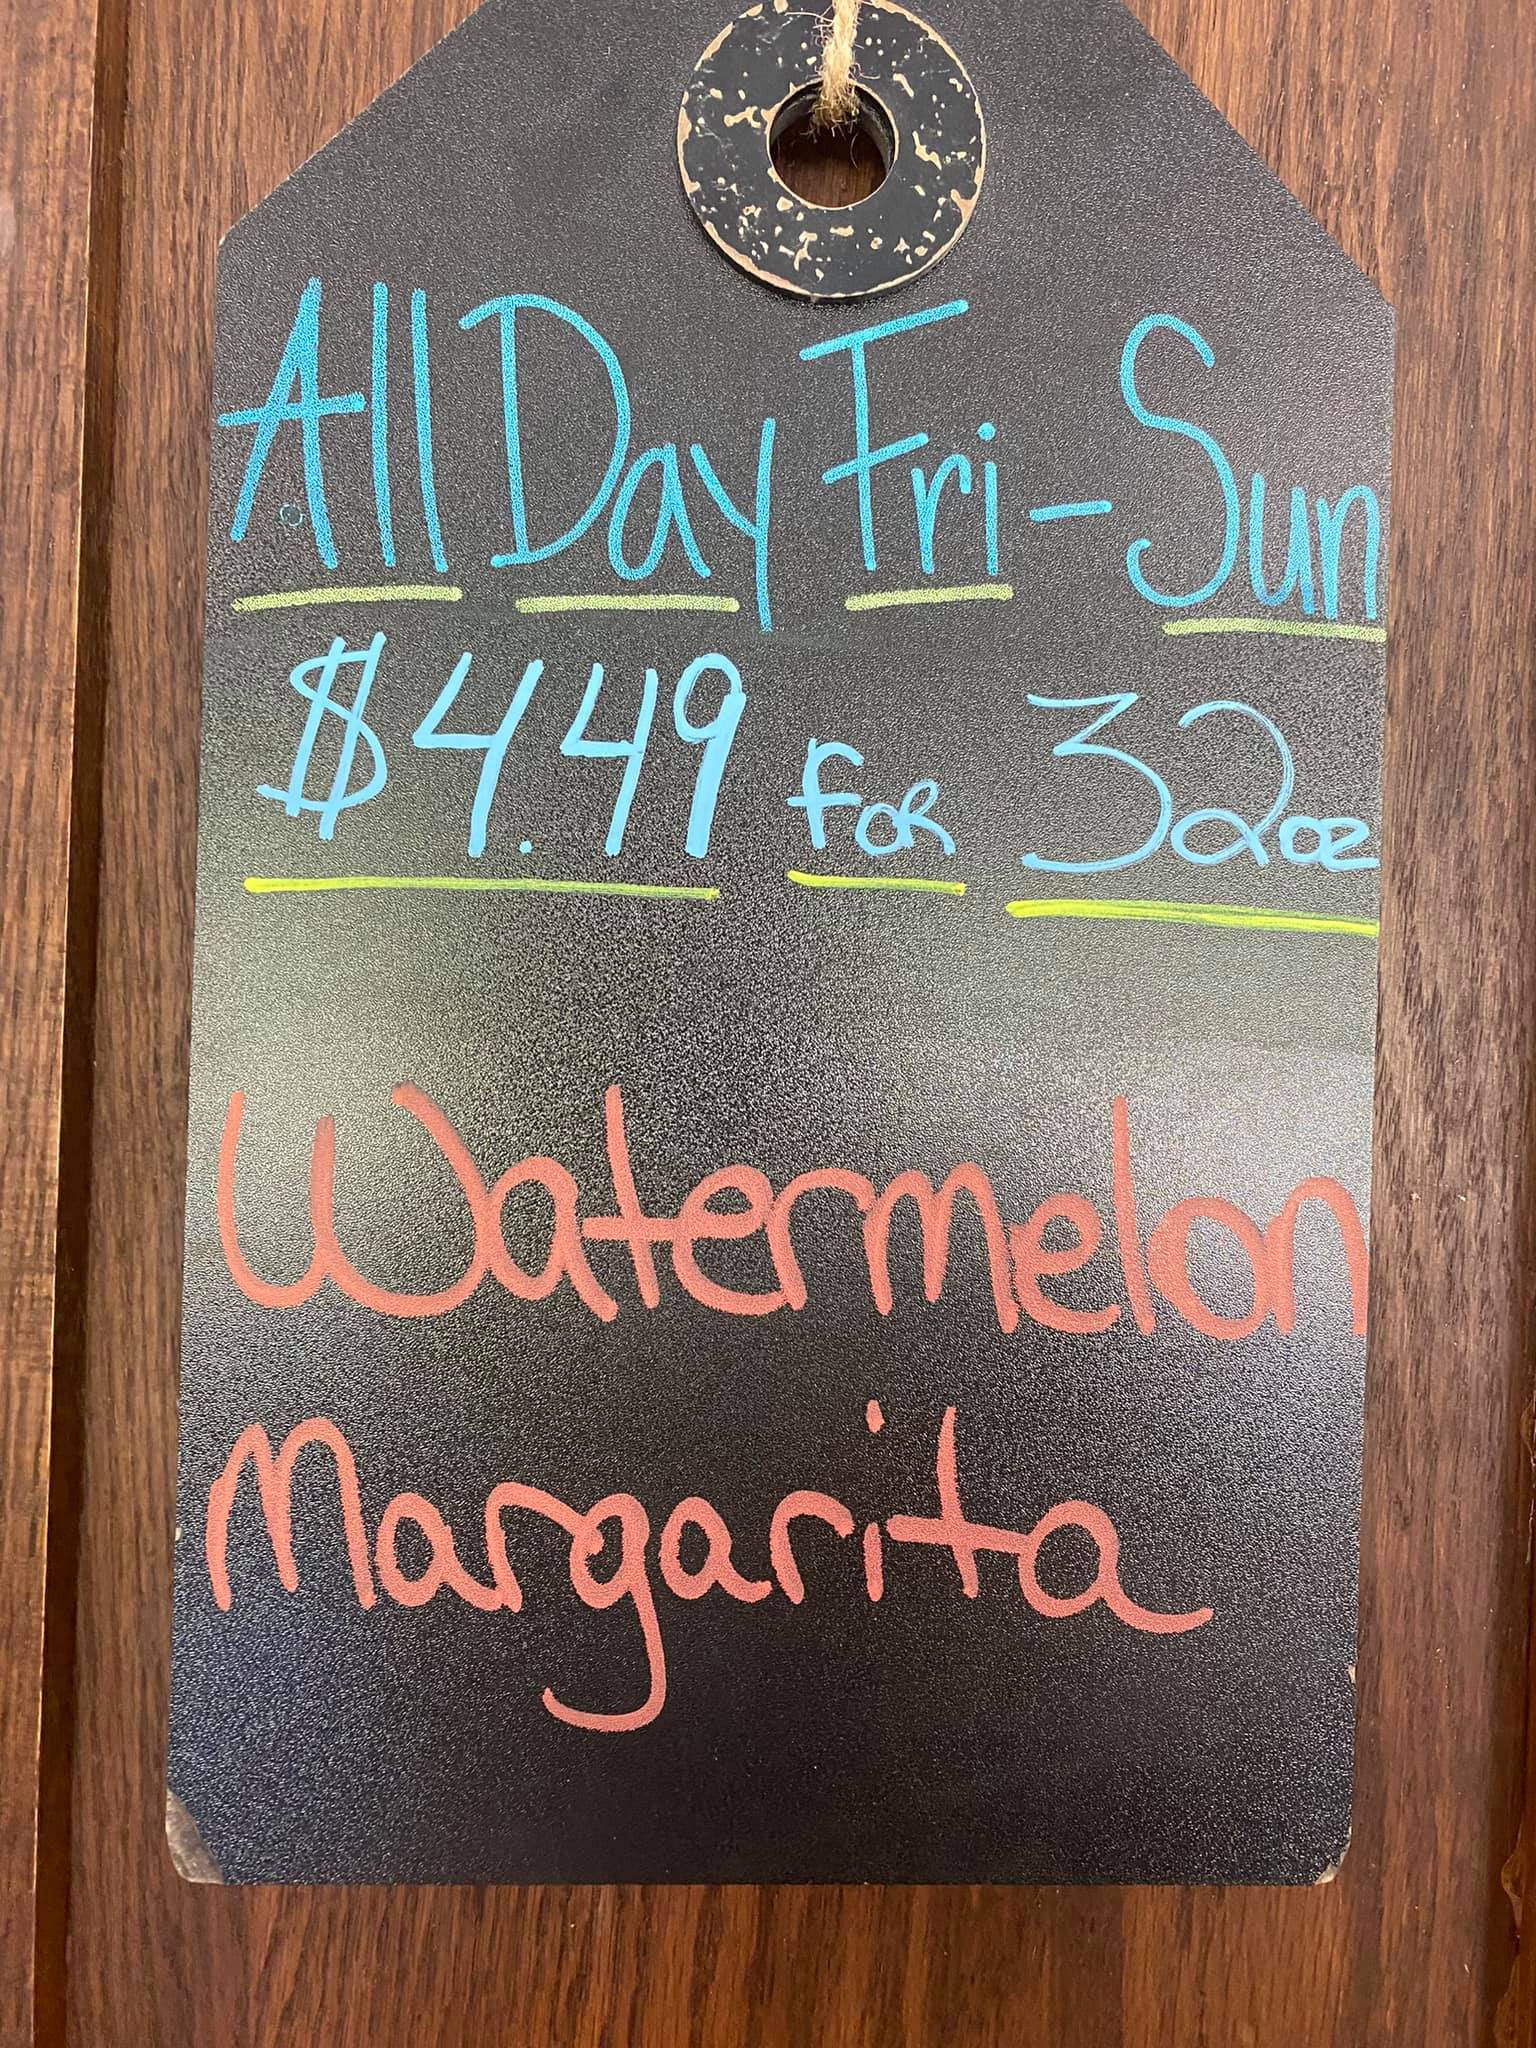 All Day Fri - Sun
$4.49 FOR 32oz
Watermelon
Margarita